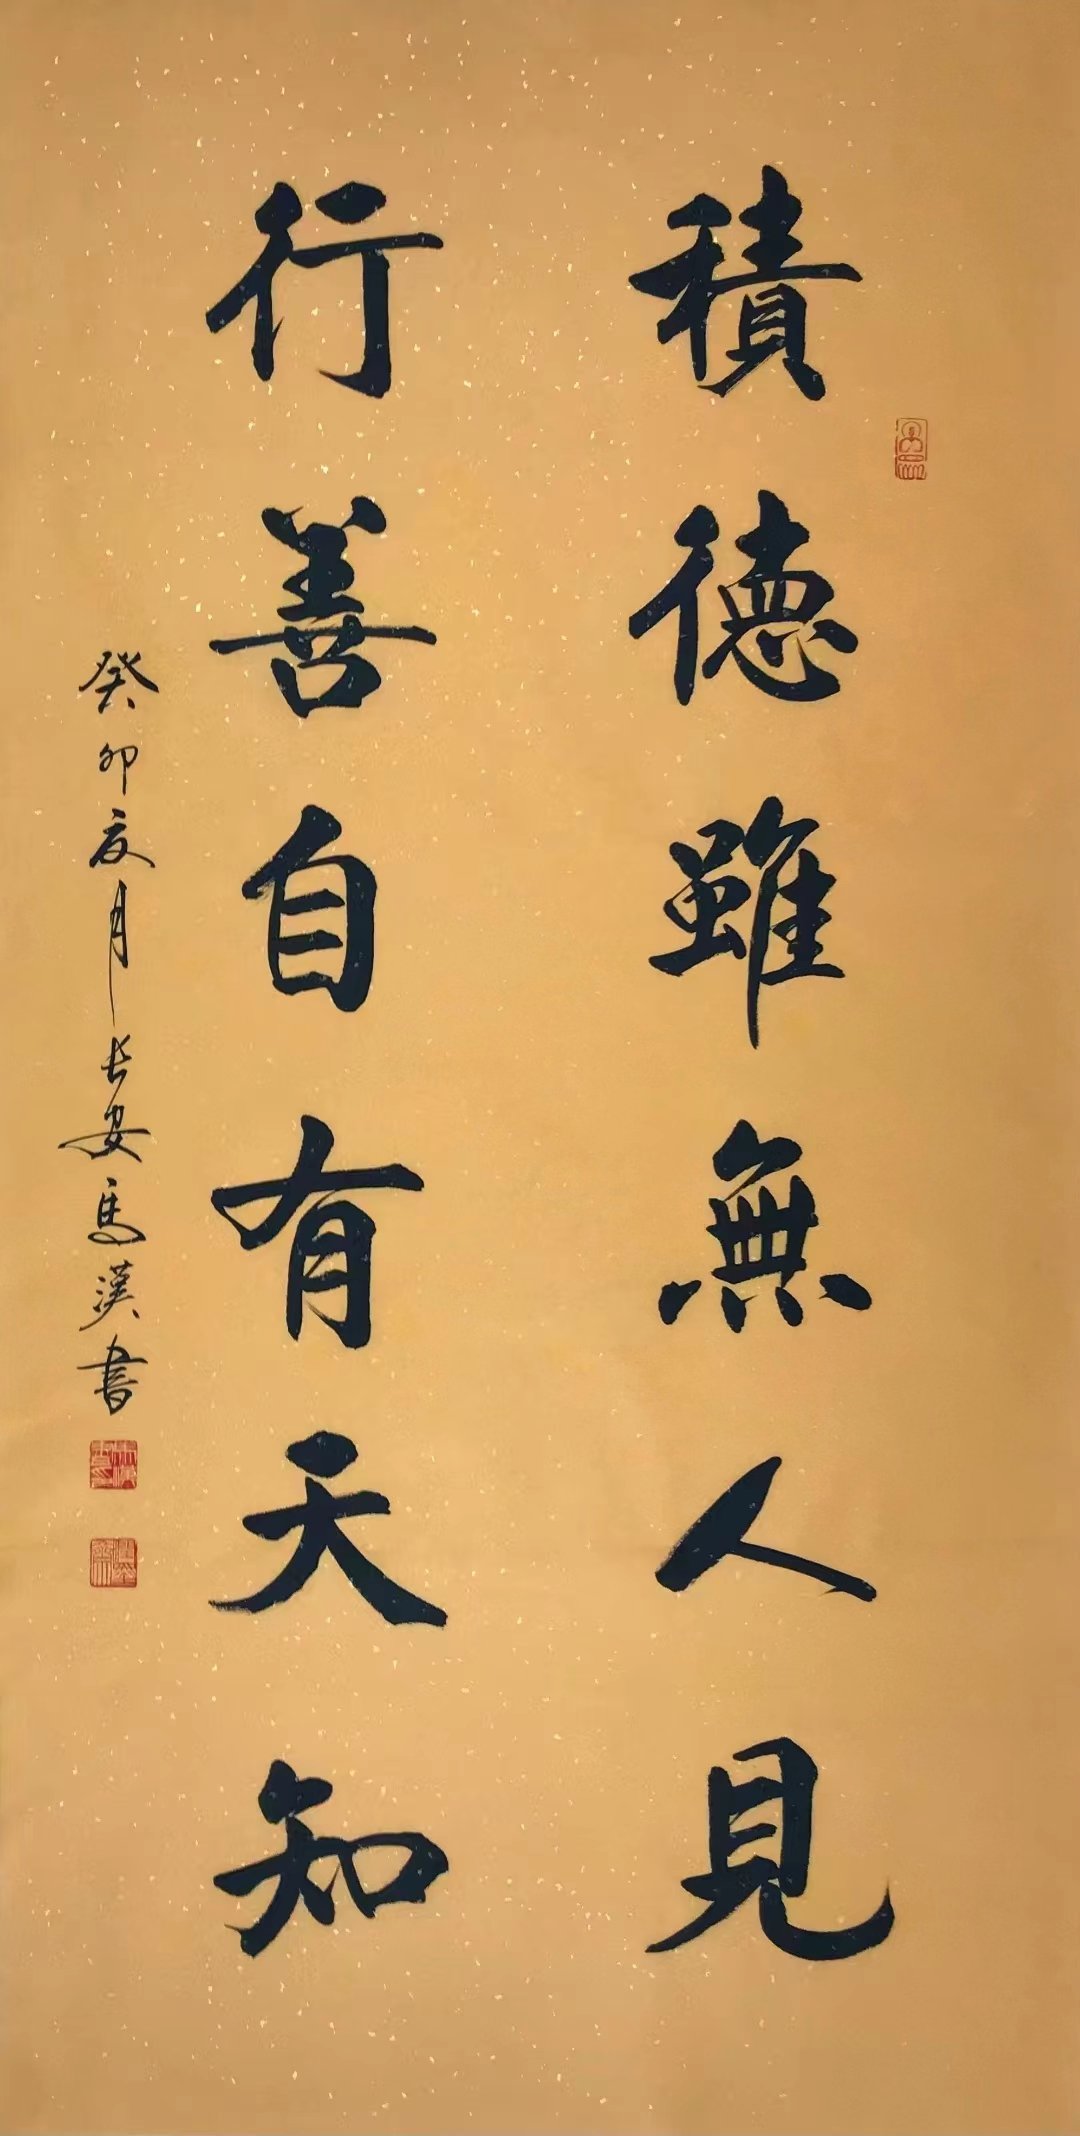 積德雖無人見
行善自有天知
癸卯夏月長安馬漢書